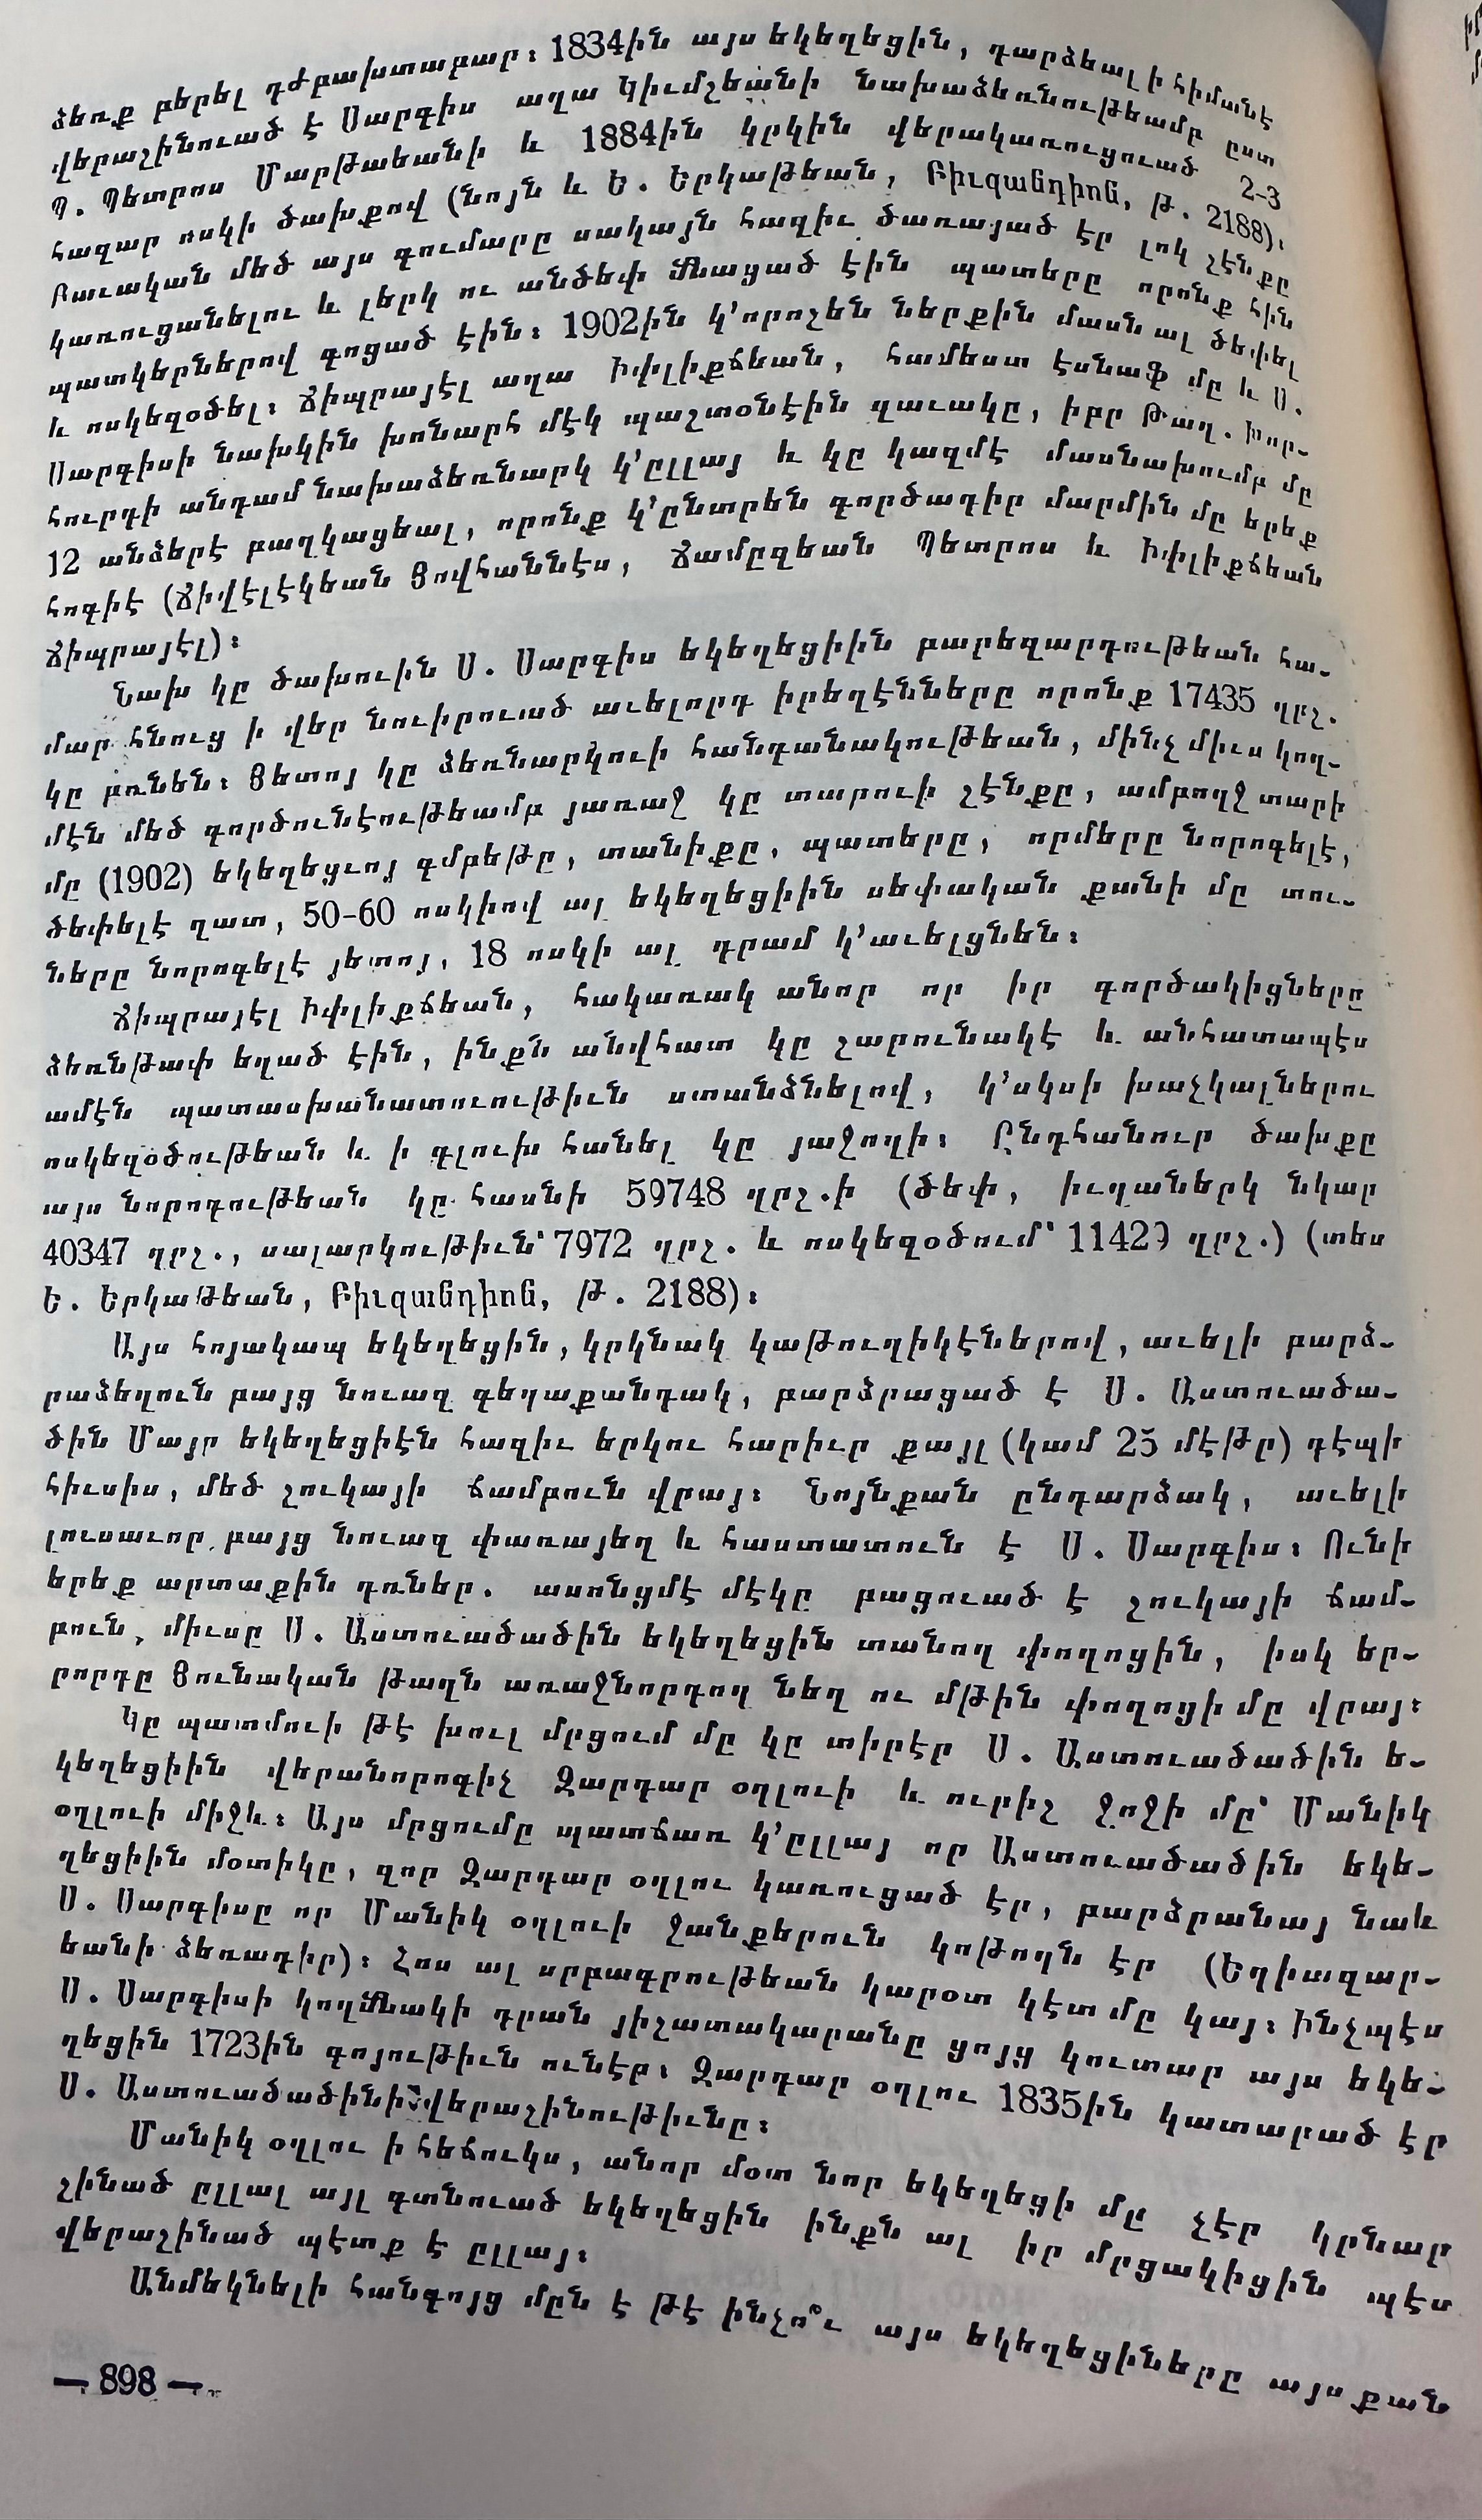 ձեռք բերել դժբախտաբար։ 1834ին այս եկեղեցին, դարձեալ ի հիմանէ
վերաշինուած է Սարգիս աղա Կիւմշեանի նախաձեռնութեամբ ըստ
Պ. Պետրոս Մարթաեանի և 1884ին կրկին վերակառուցուած 2-3
հազար ոսկի ծախքով (նոյն և Ե. Երկաթեան, Բիւզանդիոն, թ. 2188)։
Բաւական մեծ այս գումարը սակայն հազիւ ծառայած էր լոկ շէնքը
կառուցանելու և լերկ ու անծեփ մնացած էին պատերը որոնք հին
պատկերներով գոցած էին։ 1902ին կ՚որոշեն ներքին մասն ալ ծեփել
և ոսկեզօծել։ Ճիպրայէլ աղա Իփլիքճեան, համեստ էսնաֆ մը և Ս.
Սարգիսի նախկին խոնարհ մէկ պաշտօնէին զաւակը, իբր Թաղ. Խոր-
հուրդի անդամ նախաձեռնարկ կ՚ըլլայ և կը կազմէ մասնախումբ մը
12 անձերէ բաղկացեալ, որոնք կ՚ընտրեն գործադիր մարմին մը երեք
հոգիէ (Ճիվէլէկեան Յովհաննէս, Ճամըզեան Պետրոս և Իփլիքճեան
Ճիպրայէլ)։
Նախ կը ծախուին Ս. Սարգիս եկեղեցիին բարեզարդութեան հա-
մար հնուց ի վեր նուիրուած աւելորդ իրեղէնները որոնք 17435 ղրշ.
կը բռնեն։ Յետոյ կը ձեռնարկուի հանգանակութեան, մինչ միւս կող-
մէն մեծ գործունէութեամբ յառաջ կը տարուի շէնքը, ամբողջ տարի
մը (1902) եկեղեցւոյ գմբեթը, տանիքը, պատերը, որմերը նորոգելէ,
ծեփելէ զատ, 50-60 ոսկիով այ եկեղեցիին սեփական քանի մը տու-
ները նորոգելէ յետոյ, 18 ոսկի ալ դրամ կ՚աւելցնեն։
Ճիպրայէլ Իփլիքճեան, հակառակ անոր որ իր գործակիցները
ձեռնթափ եղած էին, ինքն անվհատ կը շարունակէ և անհատապէս
ամէն պատասխանատուութիւն ստանձնելով, կ՚սկսի խաչկալներու
ոսկեզօծութեան և ի գլուխ հանել կը յաջողի։ Ընդհանուր ծախքը
այս նորոգութեան կը հասնի 59748 ղրշ.ի (ծեփ, իւղաներկ նկար
40347 ղրշ., սալարկութիւն՝ 7972 ղրշ. և ոսկեզօծում՝ 11429 ղրշ.) (տես
Ե. Երկաթեան, Բիւզանդիոն, թ. 2188)։
Այս հոյակապ եկեղեցին, կրկնակ կաթուղիկէներով, աւելի բարձ-
րաձեղուն բայց նուազ գեղաքանդակ, բարձրացած է Ս. Աստուածա-
ծին Մայր եկեղեցիէն հազիւ երկու հարիւր քայլ (կամ 25 մէթր) դէպի
հիւսիս, մեծ շուկայի ճամբուն վրայ։ Նոյնքան ընդարձակ, աւելի
լուսաւոր բայց նուազ փառայեղ և հաստատուն է Ս. Սարգիս։ Ունի
երեք արտաքին դռներ. ասոնցմէ մէկը բացուած է շուկայի ճամ-
բուն, միւսը Ս. Աստուածածին եկեղեցին տանող փողոցին, իսկ եր-
րորդը Յունական թաղն առաջնորդող նեղ ու մթին փողոցի մը վրայ։
Կը պատմուի թէ խուլ մրցում մը կը տիրէր Ս. Աստուածածին ե-
կեղեցիին վերանորոգիչ Զարդար օղլուի և ուրիշ ջոջի մը՝ Մանիկ
օղլուի միջև։ Այս մրցումը պատճառ կ՚ըլլայ որ Աստուածածին եկե-
ղեցիին մօտիկը, զոր Զարդար օղլու կառուցած էր, բարձրանայ նաև
Ս. Սարգիսը որ Մանիկ օղլուի ջանքերուն կոթողն էր (Եղիազար-
եանի ձեռագիր)։ Հոս ալ սրբագրութեան կարօտ կէտ մը կայ։ Ինչպէս
Ս. Սարգիսի կողմնակի դրան յիշատակարանը ցոյց կուտար այս եկե-
ղեցին 1723ին գոյութիւն ունէր։ Զարդար օղլու 1835ին կատարած էր
Ս. Աստուածածինի վերաշինութիւնը։
Մանիկ օղլու ի հեճուկս, անոր մօտ նոր եկեղեցի մը չէր կրնար
շինած ըլլալ այլ գտնուած եկեղեցին ինքն ալ իր մրցակիցին պէս
վերաշինած պէտք է ըլլայ։
Անմեկնելի հանգոյց մըն է թէ ինչո՞ւ այս եկեղեցիները այսքան
— 898 —